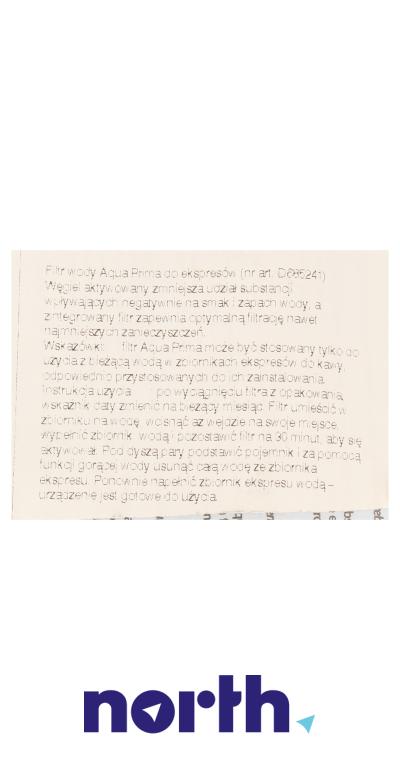 Filtr wody Aqua Prima do ekspresów (nr art. D685241)
Węgiel aktywowany zmniejsza udział substancji
wpływających negatywnie na smak i zapach wody, a
zintegrowany filtr zapewnia optymalną filtrację nawet
najmniejszych zanieczyszczeń.
Wskazówki: filtr Aqua Prima może być stosowany tylko do
użycia z bieżącą wodą w zbiornikach ekspresów do kawy,
odpowiednio przystosowanych do ich zainstalowania.
Instrukcja użycia po wyciągnięciu filtra z opakowania,
wskaźnik daty zmienić na bieżący miesiąc. Filtr umieścić w
zbiorniku na wodę, wcisnąć aż wejdzie na swoje miejsce,
wypełnić zbiornik wodą i pozostawić filtr na 30 minut, aby się
aktywował. Pod dyszą pary podstawić pojemnik i za pomocą
funkcji gorącej wody usunąć całą wodę ze zbiornika
ekspresu. Ponownie napełnić zbiornik ekspresu wodą –
urządzenie jest gotowe do użycia.
north